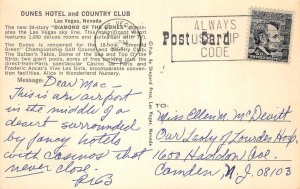 DUNES HOTEL and COUNTRY CLUB
Las Vegas, Nevada
The new 24-story "DIAMOND OF THE DUNES" dominates the Las Vegas sky line. This magnificent resort features 1,000 deluxe rooms and suites with
The Dunes is renowned for the 18-hole "Emerald Green" Championship Golf Course and Country Club,
the Sultan's Table, Dome of the Sea and Top O' the Strip; two giant pools, acres of free parking plus the Casino de Paris
Frederic Apcar's Viva Les Girls. Incomparable convention facilities. Alice in Wonderland Nursery.
Message: Dear Mac –
This is an airport
in the middle of a
desert surrounded
by fancy hotels
with casinos that
never close.
ALWAYS
USE ZIP
CODE
Post Card
TO:
Miss Ellen M. McDevitt
Our Lady of Lourdes Hosp.
1600 Haddon Ave.
Camden, N.J. 08103